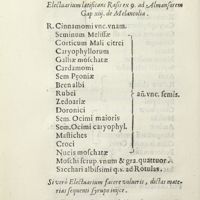 Electuarium lætificans Rasis ex 9. ad Almansorem
Cap xiij. de Melancolia.
R. Cinnamomi vnc.vnam.
Seminum Melissæ
Corticum Mali citrei
Caryophyllorum
Galliæ moschatæ
Cardamomi
Sem Pęoniæ
Bren albi
Rubei
añ.vnc.semis.
Zedoariæ
Doronici
Sem.Ocimi maioris
Sem.Ocimi caryophyl.
Mastiches
Croci
Nucis moschatæ
Moschi scrup.vnum & gra.quattuor.
Sacchari albissimi q.s. ad Rotulas.
Si verò Electuarium facere volueris, dictas mate-
rias sequenti syrupo injice.